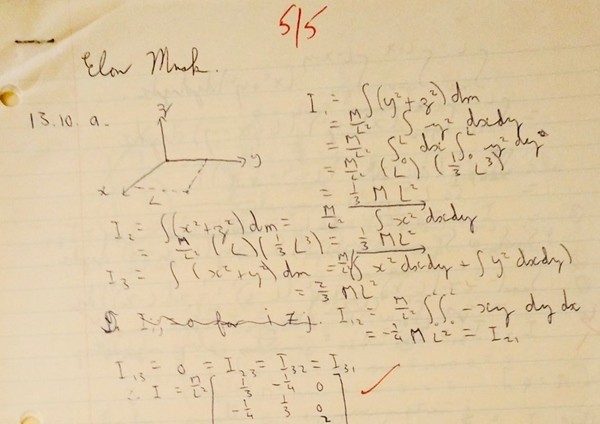 5/5
Elon Musk.
13.10. a.
z
y
x
L
I₁ = ∫(y²+z²) dm
= M/L² ∫ y² dxdy
= M/L² ∫₀ᴸ dx ∫₀ᴸ y² dy
= M/L² (L) (1/3 L³)
= 1/3 ML²
I₂ = ∫(x²+z²) dm = M/L² ∫ x² dxdy
= M/L² (L)(1/3 L³) = 1/3 ML²
I₃ = ∫(x²+y²) dm = M/L² (∫ x² dxdy + ∫ y² dxdy)
= 2/3 ML²
I₁₂ = M/L² ∫∫ -xy dy dx
= -1/4 ML² = I₂₁
I₁₃ = 0 = I₂₃ = I₃₂ = I₃₁
∴ I =
1/3 -1/4 0
-1/4 1/3 0
2